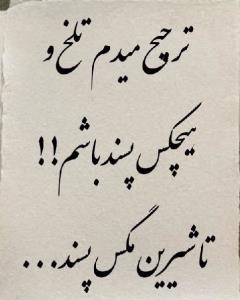 ترجیح میدم تلخ و
هیچکس پسند باشم!!
تا شیرین مگس پسند...